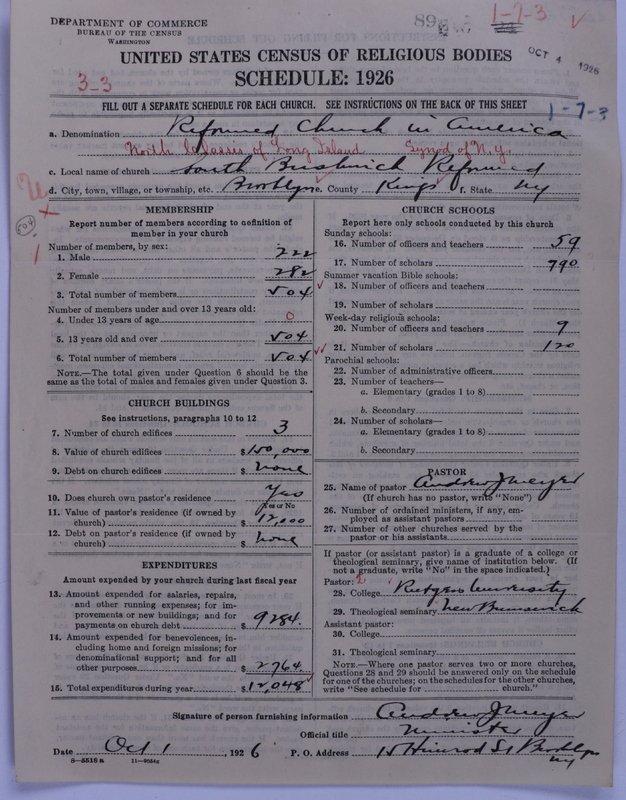 DEPARTMENT OF COMMERCE
BUREAU OF THE CENSUS
WASHINGTON
1-7-3
OCT 4 1926
UNITED STATES CENSUS OF RELIGIOUS BODIES
SCHEDULE: 1926
3-3
FILL OUT A SEPARATE SCHEDULE FOR EACH CHURCH. SEE INSTRUCTIONS ON THE BACK OF THIS SHEET
1-7-3
a. Denomination Reformed Church in America
North Classis of Long Island Synod of N.Y.
c. Local name of church South Bushwick Reformed
d. City, town, village, or township, etc. Brooklyn e. County Kings f. State NY
504
MEMBERSHIP
Report number of members according to definition of member in your church
Number of members, by sex:
1. Male 222
2. Female 282
3. Total number of members 504
Number of members under and over 13 years old:
4. Under 13 years of age 0
5. 13 years old and over 504
6. Total number of members 504
NOTE.—The total given under Question 6 should be the same as the total of males and females given under Question 3.
CHURCH BUILDINGS
See instructions, paragraphs 10 to 12
7. Number of church edifices 3
8. Value of church edifices $150,000
9. Debt on church edifices $ none
10. Does church own pastor's residence Yes
(Yes or No
11. Value of pastor's residence (if owned by church) $ 12,000
12. Debt on pastor's residence (if owned by church) $ none
EXPENDITURES
Amount expended by your church during last fiscal year
13. Amount expended for salaries, repairs, and other running expenses; for improvements or new buildings; and for payments on church debt $ 9284.
14. Amount expended for benevolences, including home and foreign missions; for denominational support; and for all other purposes $ 2764.
15. Total expenditures during year $12,048
CHURCH SCHOOLS
Report here only schools conducted by this church
Sunday schools:
16. Number of officers and teachers 59
17. Number of scholars 790
Summer vacation Bible schools:
18. Number of officers and teachers
19. Number of scholars
Week-day religious schools:
20. Number of officers and teachers 9
21. Number of scholars 120
Parochial schools:
22. Number of administrative officers
23. Number of teachers—
a. Elementary (grades 1 to 8)
b. Secondary
24. Number of scholars—
a. Elementary (grades 1 to 8)
b. Secondary
PASTOR
25. Name of pastor Andrew J Meyer
(If church has no pastor, write "None")
26. Number of ordained ministers, if any, employed as assistant pastors
27. Number of other churches served by the pastor or his assistants
If pastor (or assistant pastor) is a graduate of a college or theological seminary, give name of institution below. (If not a graduate, write "No" in the space indicated.)
Pastor: 2
28. College Rutgers University
29. Theological seminary New Brunswick
Assistant pastor:
30. College
31. Theological seminary
NOTE.—Where one pastor serves two or more churches, Questions 28 and 29 should be answered only on the schedule for one of the churches; on the schedules for the other churches, write "See schedule for church."
Signature of person furnishing information Andrew J Meyer
Official title Minister
Date Oct 1 1926 P. O. Address 15 Himrod St Brooklyn NY
8-5518 a 11-9054